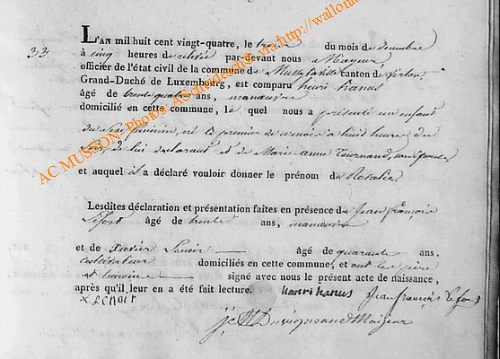 33
L'AN mil huit cent vingt-quatre, le treize du mois de decembre
à cinq heures de relevée par-devant nous Mayeur
officier de l'état civil de la commune de Mussy la ville canton de Virton
Grand-Duché de Luxembourg, est comparu henri hanus
âgé de trente quatre ans, manœuvre
domicilié en cette commune, le quel nous a présenté un enfant
du sexe feminin, né le premier du mois à huit heures du
soir, de lui declarant et de Marie anne Tournaud, son epouse
et auquel il a déclaré vouloir donner le prénom de Rosalie
Lesdites déclaration et présentation faites en présence de Jean françois
Lefort âgé de trente ans, manœuvre
et de Xavier Lenoir âgé de quarante ans.
cultivateur domiciliés en cette commune, et ont le père
et temoins signé avec nous le présent acte de naissance,
après qu'il leur en a été fait lecture. henri hanus Jean françois Le fort
X LENOIR
Duvigneaud Maÿeur
AC MUSSON Photos: AScheideck, via http://wallonie